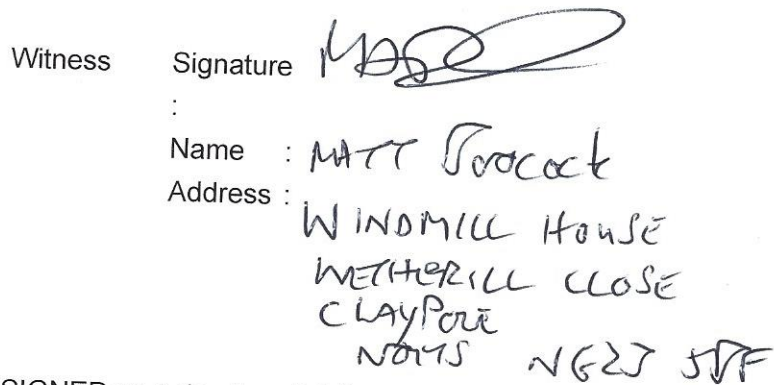 Witness Signature
:
Name : MATT
Address :
WINDMILL HOUSE
WETHERILL CLOSE
CLAYPOLE
NOTTS NG23
SIGNED